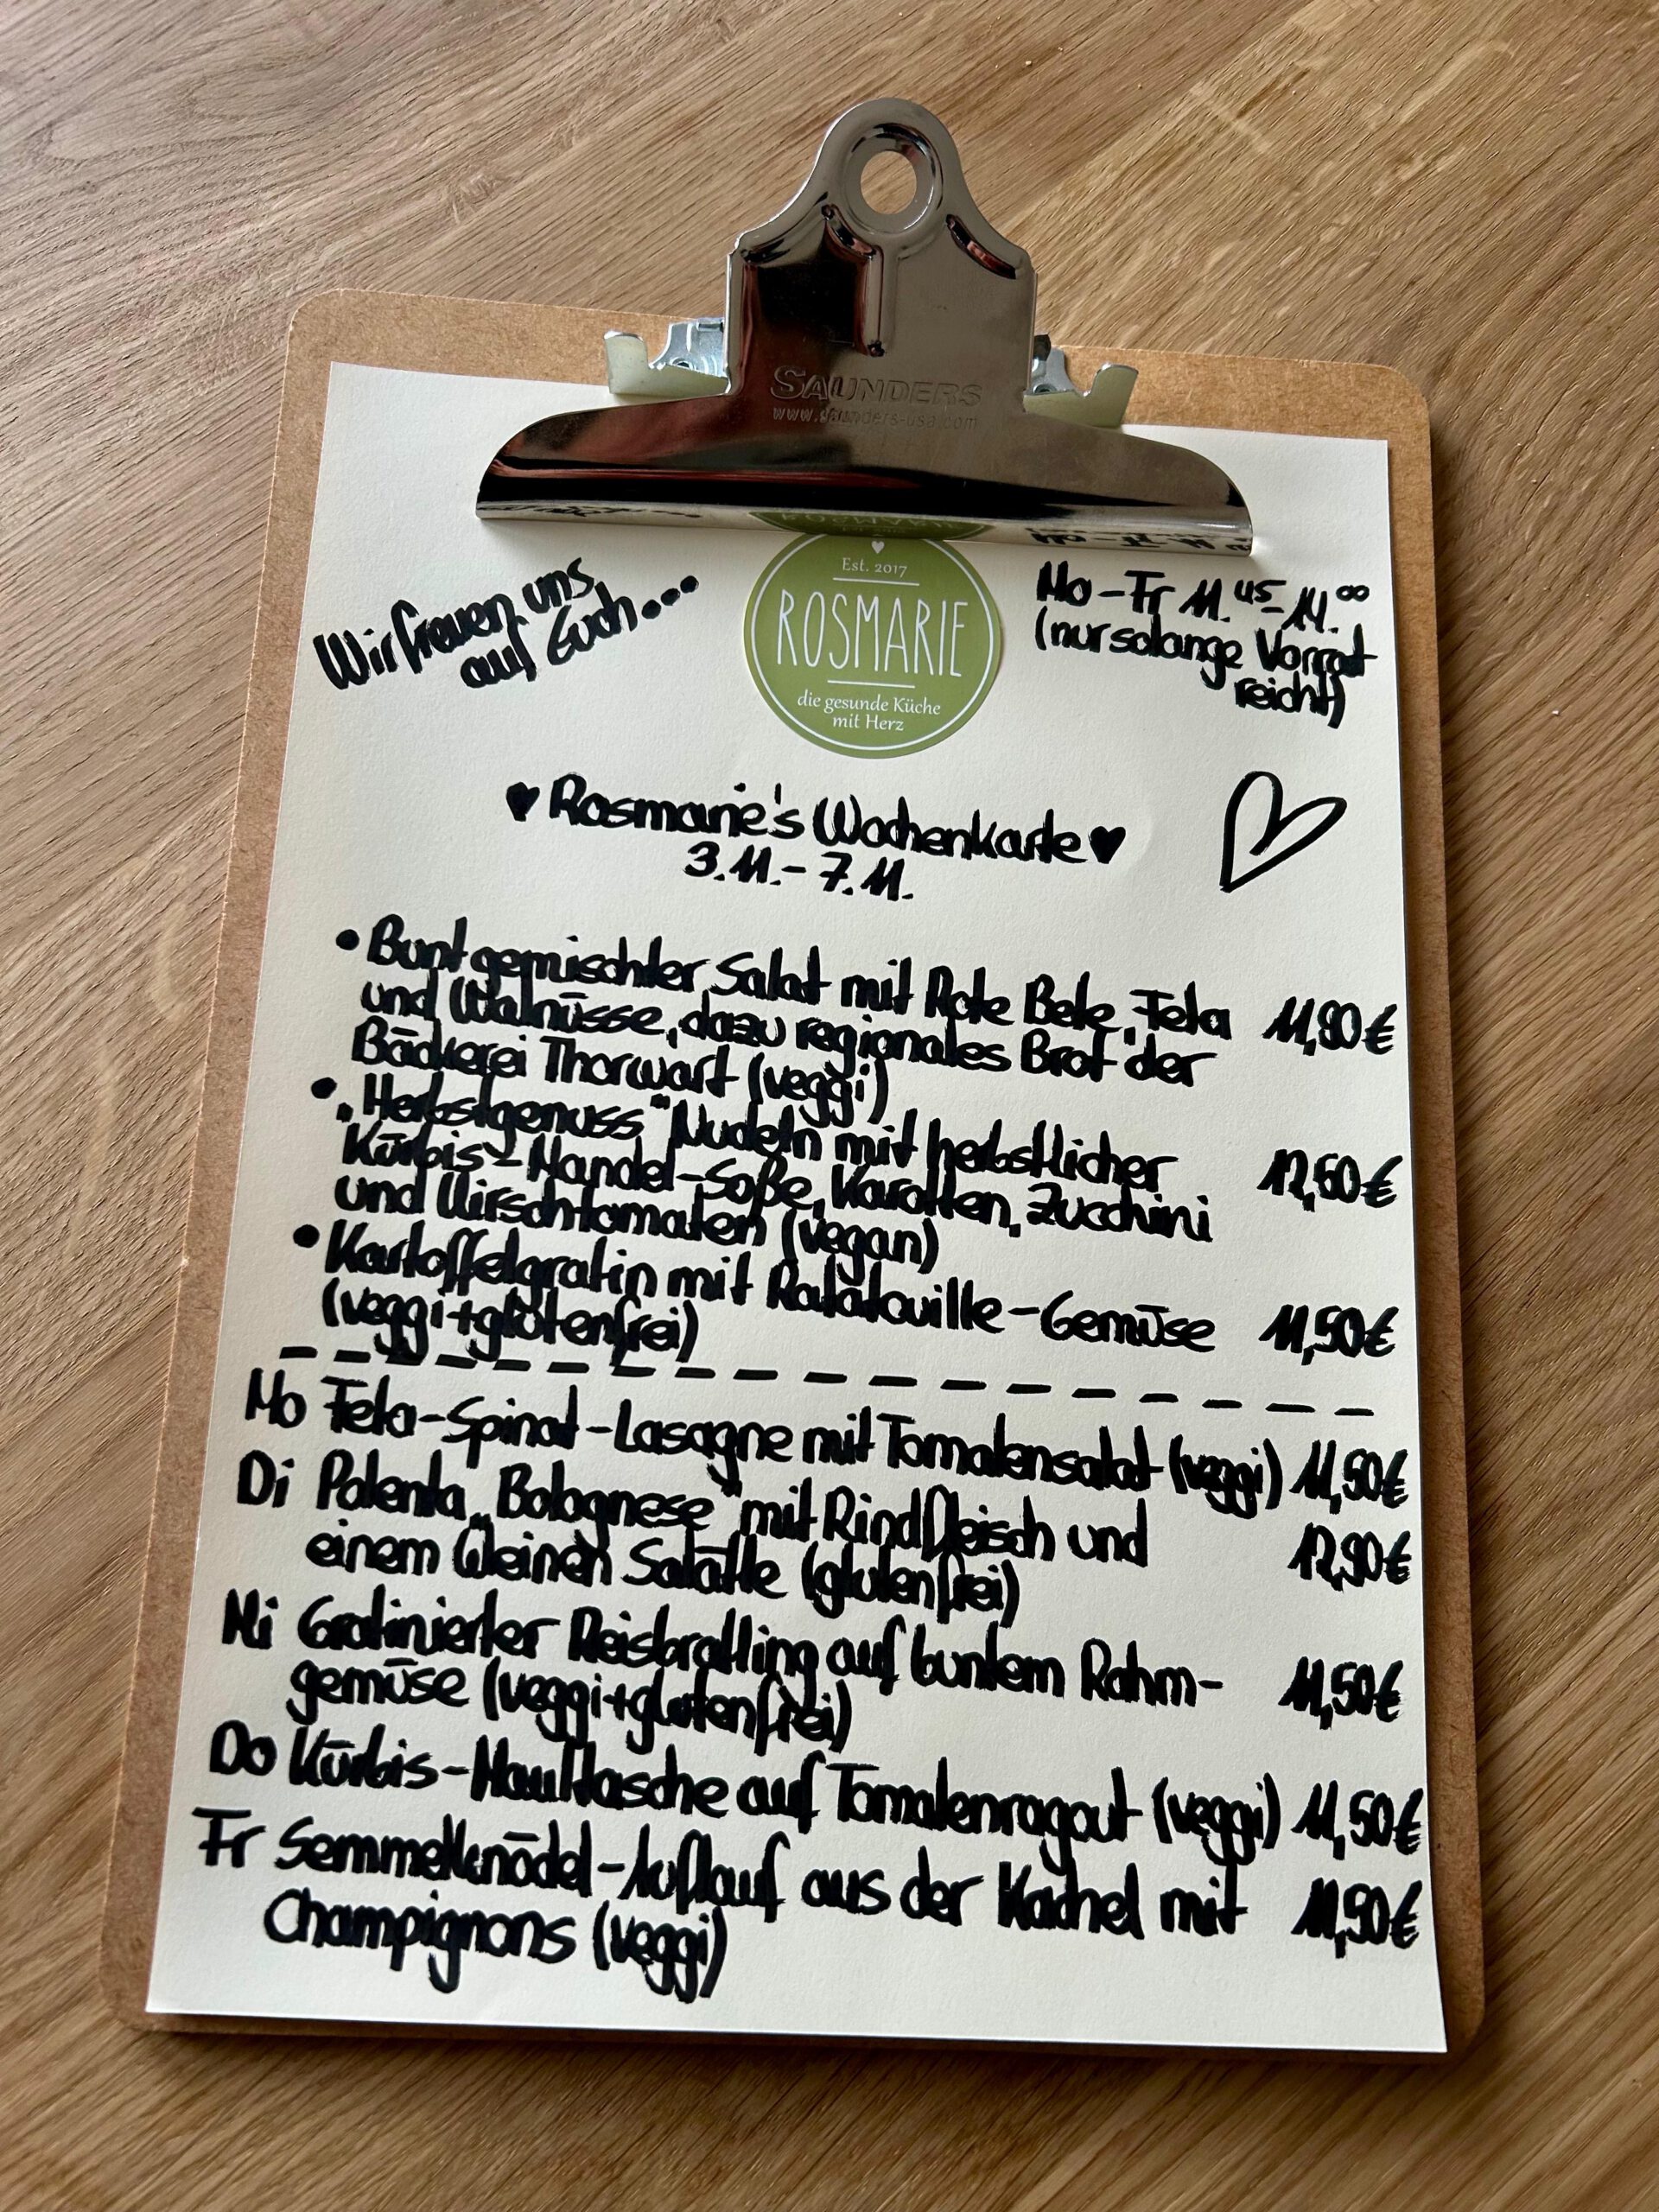 SAUNDERS
www.saunders-usa.com
Wir freuen uns
auf Euch...
Est. 2017
ROSMARIE
die gesunde Küche
mit Herz
Mo-Fr 11.45-14.00
(nur solange Vorrat
reicht)
♥ Rosmarie's Wochenkarte ♥
3.11.-7.11.
• Bunt gemischter Salat mit Rote Bete, Feta
und Walnüsse, dazu regionales Brot der 11,90€
Bäckerei Thorwart (veggi)
• „Herbstgenuss" Nudeln mit herbstlicher
Kürbis-Mandel-Soße, Karotten, Zucchini 12,60€
und Kirschtomaten (vegan)
• Kartoffelgratin mit Ratatouille-Gemüse 11,50€
(veggi+glutenfrei)
Mo Feta-Spinat-Lasagne mit Tomatensalat (veggi) 11,50€
Di Polenta „Bolognese" mit Rindfleisch und
einem kleinen Salätle (glutenfrei) 12,90€
Mi Gratinierter Reisbratling auf buntem Rahm-
gemüse (veggi+glutenfrei) 11,50€
Do Kürbis-Maultasche auf Tomatenragout (veggi) 11,50€
Fr Semmelknödel-Auflauf aus der Kachel mit 11,50€
Champignons (veggi)